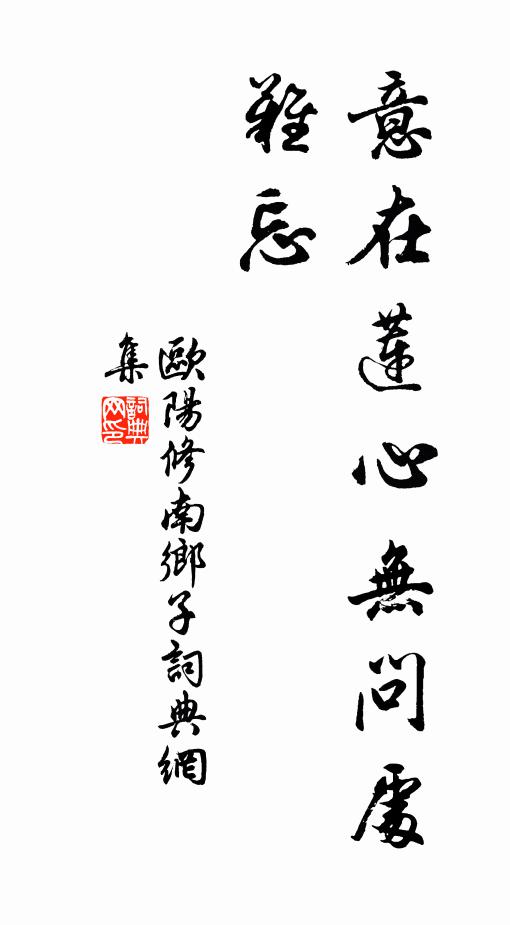 意在蓮心無問處
難忘
歐陽修南鄉子詞典網
集
詞典
网印